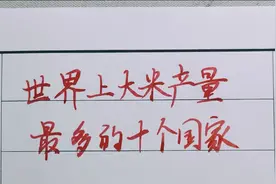 世界上大米产量
最多的十个国家